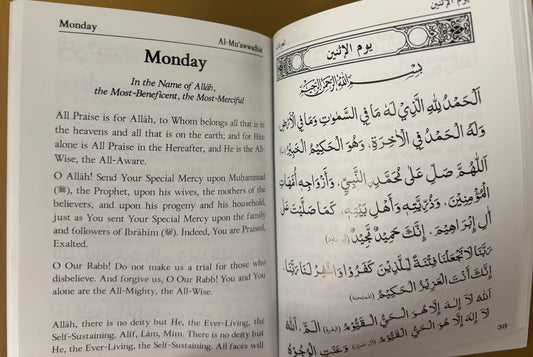 Monday
Al-Mu'awwadhat
Monday
In the Name of Allāh,
the Most-Beneficent, the Most-Merciful
All Praise is for Allāh, to Whom belongs all that is in
the heavens and all that is on the earth; and for Him
alone is All Praise in the Hereafter, and He is the All-
Wise, the All-Aware.
O Allāh! Send Your Special Mercy upon Muḥammad
(ﷺ), the Prophet, upon his wives, the mothers of the
believers, and upon his progeny and his household,
just as You sent Your Special Mercy upon the family
and followers of Ibrāhīm (ﷺ). Indeed, You are Praised,
Exalted.
O Our Rabb! Do not make us a trial for those who
disbelieve. And forgive us, O Our Rabb! You and You
alone are the All-Mighty, the All-Wise.
Allāh, there is no deity but He, the Ever-Living, the
Self-Sustaining. Alif, Lām, Mīm. There is no deity but
He, the Ever-Living, the Self-Sustaining. All faces will
يوم الإثنين
يوم الإثنين
بِسْمِ اللهِ الرَّحْمٰنِ الرَّحِيْمِ
اَلْحَمْدُ لِلّٰهِ الَّذِيْ لَهٗ مَا فِي السَّمٰوٰتِ وَمَا فِي الْأَرْضِ
وَلَهُ الْحَمْدُ فِي الْاٰخِرَةِ، وَهُوَ الْحَكِيْمُ الْخَبِيْرُ
اَللّٰهُمَّ صَلِّ عَلٰى مُحَمَّدِ النَّبِيِّ، وَأَزْوَاجِهٖ أُمَّهَاتِ
الْمُؤْمِنِيْنَ، وَذُرِّيَّتِهٖ وَأَهْلِ بَيْتِهٖ، كَمَا صَلَّيْتَ عَلٰى
اٰلِ إِبْرَاهِيْمَ، إِنَّكَ حَمِيْدٌ مَّجِيْدٌ (أبو داود)
رَبَّنَا لَا تَجْعَلْنَا فِتْنَةً لِّلَّذِيْنَ كَفَرُوْا وَاغْفِرْ لَنَا رَبَّنَا،
إِنَّكَ أَنْتَ الْعَزِيْزُ الْحَكِيْمُ (الممتحنة)
اَللهُ لَآ إِلٰهَ إِلَّا هُوَ الْحَيُّ الْقَيُّوْمُ الٓمّٓ، اَللهُ
لَآ إِلٰهَ إِلَّا هُوَ الْحَيُّ الْقَيُّوْمُ وَعَنَتِ الْوُجُوْهُ
38